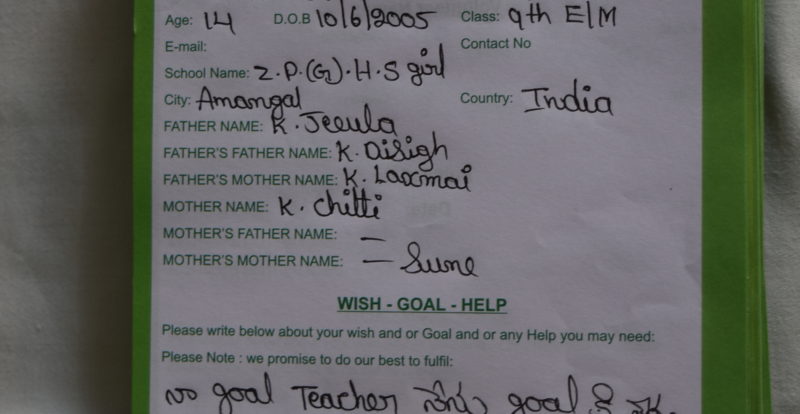 Age: 14 D.O.B 10/6/2005 Class: 9th E/M
E-mail: Contact No
School Name: Z.P.(G).H.S girl
City: Amangal Country: India
FATHER NAME: K. Jeeula
FATHER'S FATHER NAME: K. Disigh
FATHER'S MOTHER NAME: K. Laxmai
MOTHER NAME: K. chitti
MOTHER'S FATHER NAME: —
MOTHER'S MOTHER NAME: — Sune
WISH - GOAL - HELP
Please write below about your wish and or Goal and or any Help you may need:
Please Note : we promise to do our best to fulfil:
goal Teacher నేను goal కి